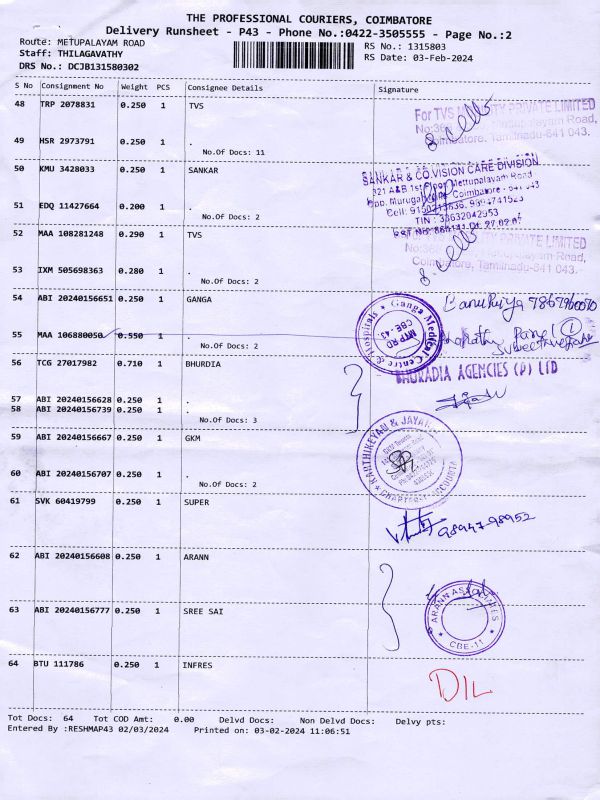 THE PROFESSIONAL COURIERS, COIMBATORE
Delivery Runsheet - P43 - Phone No.:0422-3505555 - Page No.:2
Route: METUPALAYAM ROAD RS No.: 1315803
Staff: THILAGAVATHY RS Date: 03-Feb-2024
DRS No.: DCJB131580302
S No Consignment No Weight PCS Consignee Details Signature
48 TRP 2078831 0.250 1 TVS
For TVS PRIVATE LIMITED
49 HSR 2973791 0.250 1 .
No.Of Docs: 11
Coimbatore, Tamilnadu-641 043.
50 KMU 3428033 0.250 1 SANKAR
SANKAR & CO.VISION CARE DIVISION
321 A&B 1st Floor Mettupalayam Road
51 EDQ 11427664 0.200 1 .
No.Of Docs: 2
TIN : 33632042953
52 MAA 108281248 0.290 1 TVS
PRIVATE LIMITED
53 IXM 505698363 0.280 1 .
No.Of Docs: 2
Coimbatore, Tamilnadu-641 043.
54 ABI 20240156651 0.250 1 GANGA
Ganga Medical Centre & Hospitals
MTP RD
CBE-43
55 MAA 106880050 0.550 1 .
No.Of Docs: 2
56 TCG 27017982 0.710 1 BHURDIA
BHURADIA AGENCIES (P) LTD
57 ABI 20240156628 0.250 1 .
58 ABI 20240156739 0.250 1 .
No.Of Docs: 3
59 ABI 20240156667 0.250 1 GKM
KARTHIKEYAN & JAYA
60 ABI 20240156707 0.250 1 .
No.Of Docs: 2
61 SVK 60419799 0.250 1 SUPER
9894798952
62 ABI 20240156608 0.250 1 ARANN
ARANN ASSOCIATES
CBE-11
63 ABI 20240156777 0.250 1 SREE SAI
64 BTU 111786 0.250 1 INFRES
DIL
Tot Docs: 64 Tot COD Amt: 0.00 Delvd Docs: Non Delvd Docs: Delvy pts:
Entered By :RESHMAP43 02/03/2024 Printed on: 03-02-2024 11:06:51